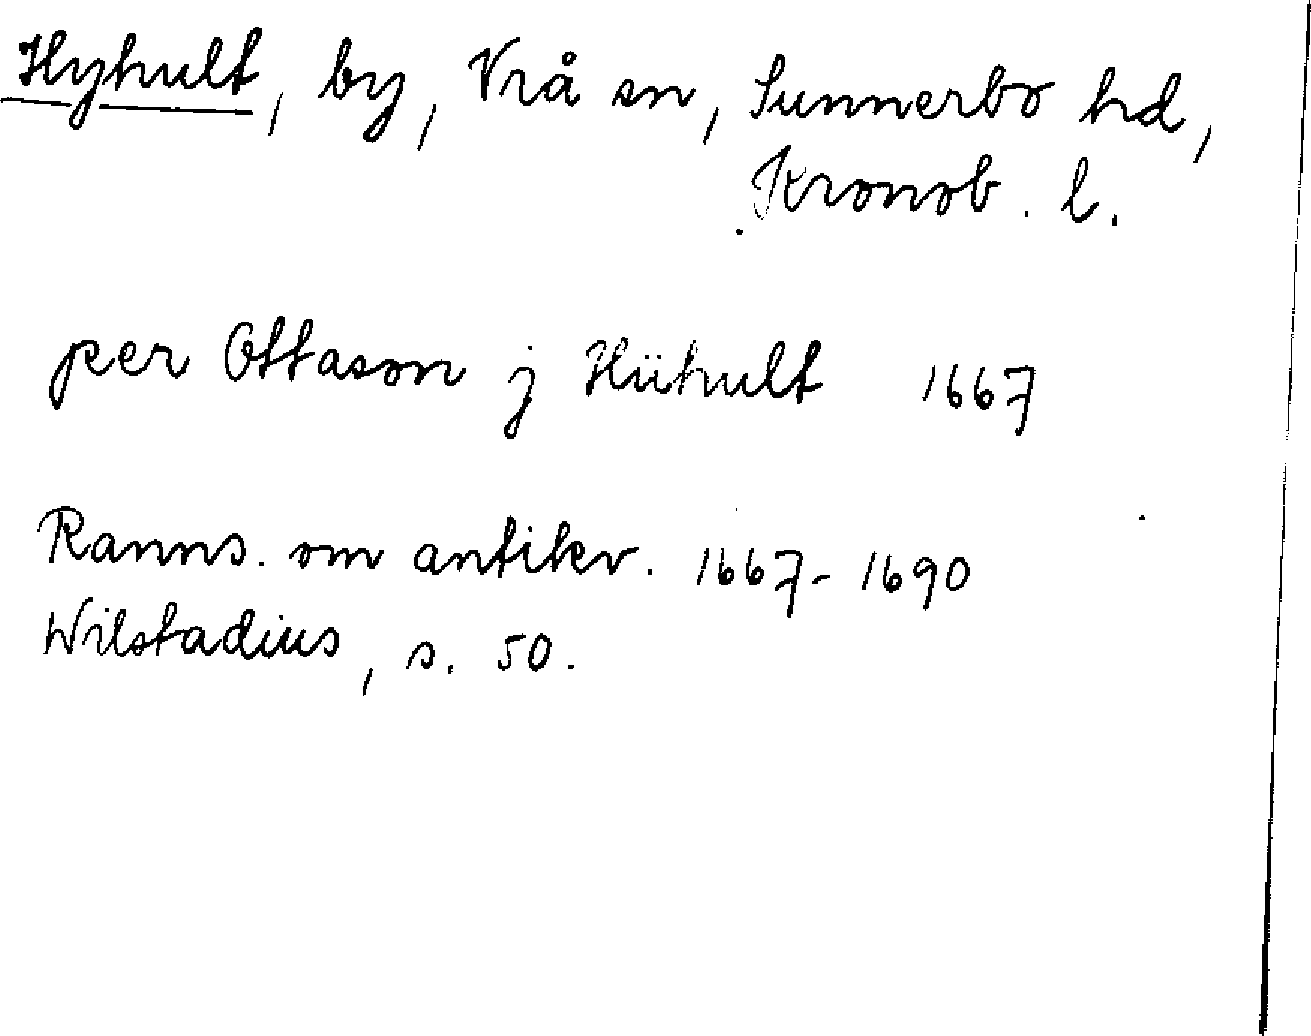 Hyhult, by, Vrå sn, Sunnerbo hd,
Kronob. l.
per Ottason j Hiihult 1667
Ranns. om antikv. 1667-1690
Wilstadius, s. 50.